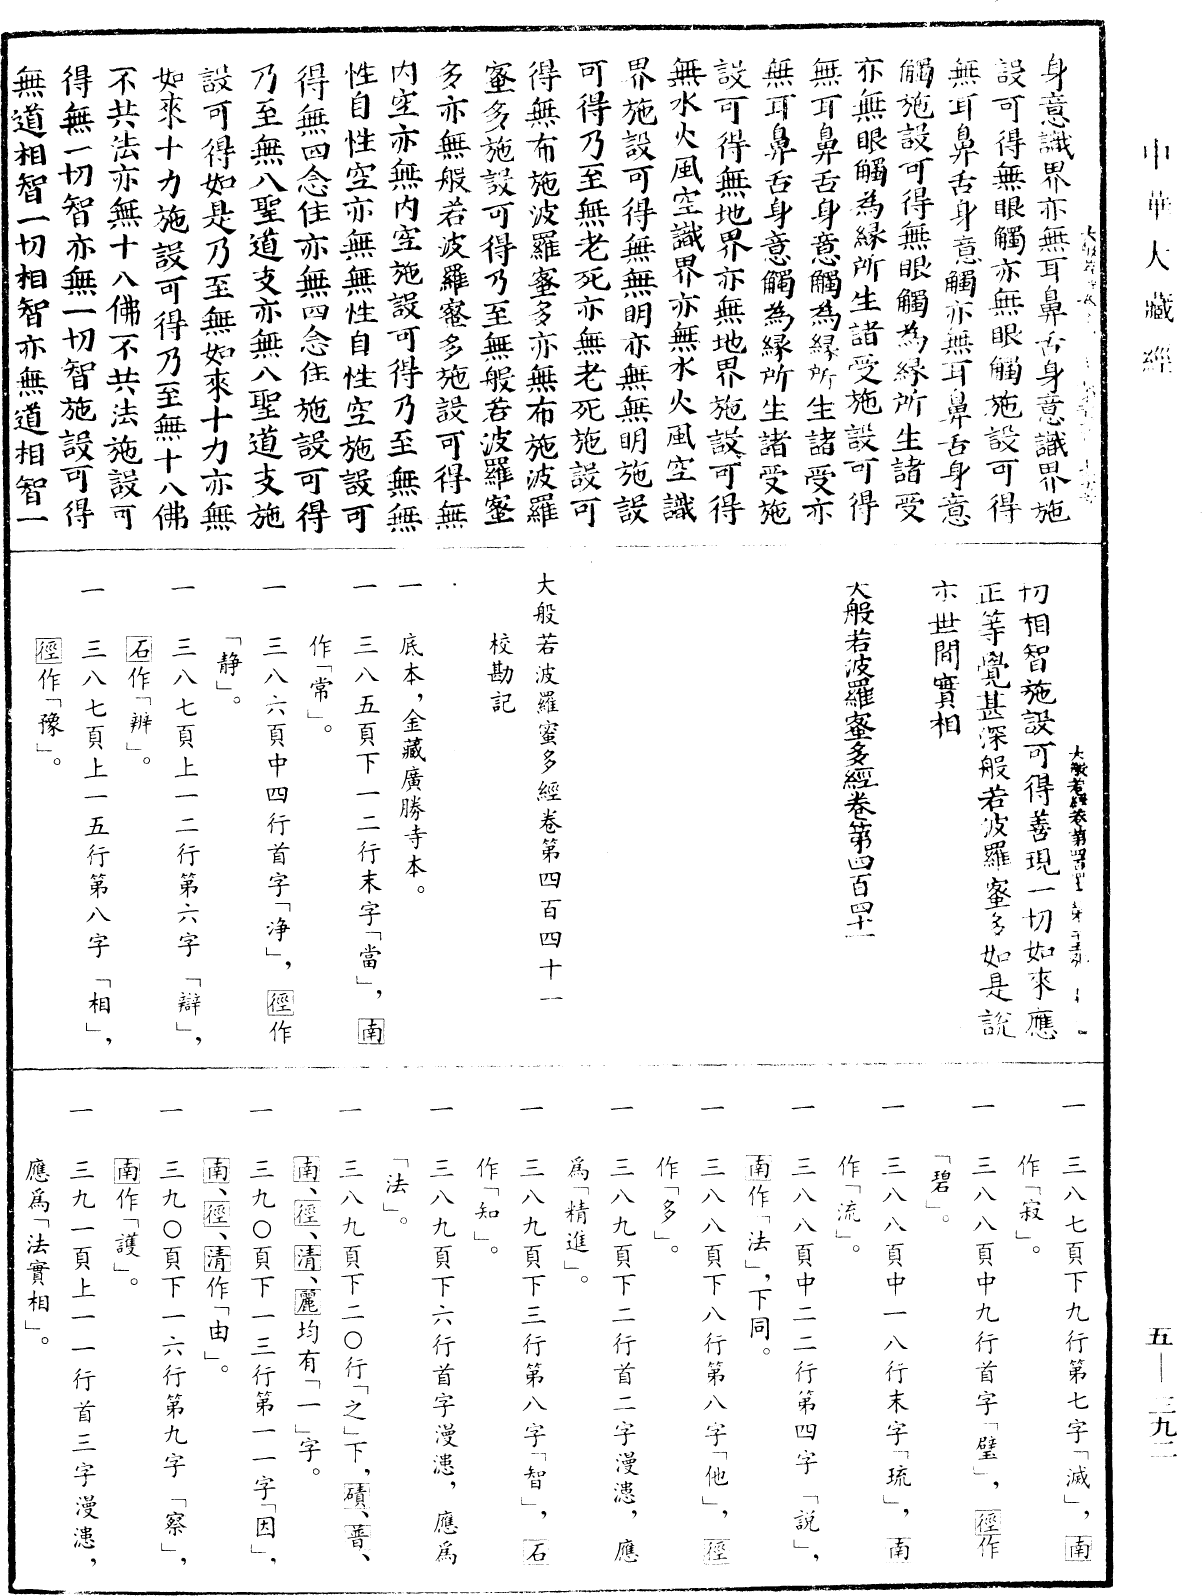 中華大藏經
身意識界亦無耳鼻舌身意識界施
設可得無眼觸亦無眼觸施設可得
無耳鼻舌身意觸亦無耳鼻舌身意
觸施設可得無眼觸為緣所生諸受
亦無眼觸為緣所生諸受施設可得
無耳鼻舌身意觸為緣所生諸受亦
無耳鼻舌身意觸為緣所生諸受施
設可得無地界亦無地界施設可得
無水火風空識界亦無水火風空識
界施設可得無無明亦無無明施設
可得乃至無老死亦無老死施設可
得無布施波羅蜜多亦無布施波羅
蜜多施設可得乃至無般若波羅蜜
多亦無般若波羅蜜多施設可得無
內空亦無內空施設可得乃至無無
性自性空亦無無性自性空施設可
得無四念住亦無四念住施設可得
乃至無八聖道支亦無八聖道支施
設可得如是乃至無如來十力亦無
如來十力施設可得乃至無十八佛
不共法亦無十八佛不共法施設可
得無一切智亦無一切智施設可得
無道相智一切相智亦無道相智一
切相智施設可得善現一切如來應
正等覺甚深般若波羅蜜多如是說
示世間實相
大般若波羅蜜多經卷第四百四十一
大般若波羅蜜多經卷第四百四十一
校勘記
一　底本，金藏廣勝寺本。
一　三八五頁下一二行末字「當」，南
作「常」。
一　三八六頁中四行首字「净」，徑作
「静」。
一　三八七頁上一二行第六字「辯」，
石作「辨」。
一　三八七頁上一五行第八字「相」，
徑作「豫」。
一　三八七頁下九行第七字「滅」，南
作「寂」。
一　三八八頁中九行首字「璧」，徑作
「碧」。
一　三八八頁中一八行末字「琉」，南
作「流」。
一　三八八頁中二二行第四字「説」，
南作「法」，下同。
一　三八八頁下八行第八字「他」，徑
作「多」。
一　三八九頁下二行首二字漫漶，應
爲「精進」。
一　三八九頁下三行第八字「智」，石
作「知」。
一　三八九頁下六行首字漫漶，應爲
「法」。
一　三八九頁下二〇行「之」下，磧、普、
南、徑、清、麗均有「一」字。
一　三九〇頁下一三行第一一字「因」，
南、徑、清作「由」。
一　三九〇頁下一六行第九字「察」，
南作「護」。
一　三九一頁上一一行首三字漫漶，
應爲「法實相」。
五—三九二